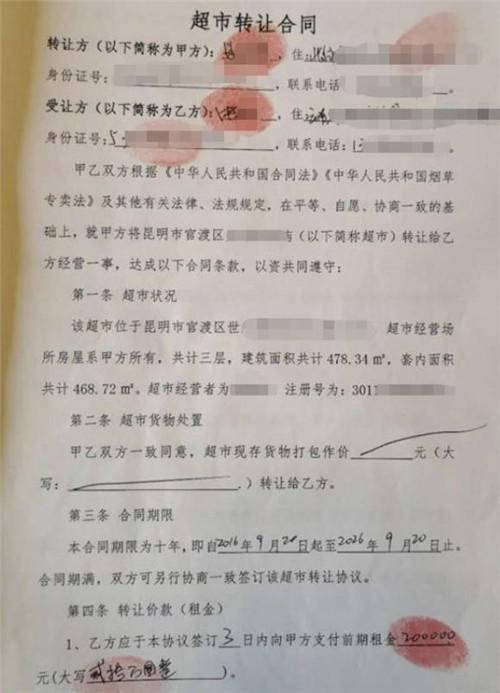 超市转让合同
转让方（以下简称为甲方）：，住：
身份证号：，联系电话。
受让方（以下简称为乙方）：，住：
身份证号：5，联系电话：1。
甲乙双方根据《中华人民共和国合同法》《中华人民共和国烟草
专卖法》及其他有关法律、法规规定，在平等、自愿、协商一致的基
础上，就甲方将昆明市官渡区（以下简称超市）转让给乙
方经营一事，达成以下合同条款，以资共同遵守：
第一条 超市状况
该超市位于昆明市官渡区世 超市经营场
所房屋系甲方所有，共计三层，建筑面积共计 478.34 ㎡，套内面积
共计 468.72 ㎡。超市经营者为 注册号为：3011
第二条 超市货物处置
甲乙双方一致同意，超市现存货物打包作价 元（大
写： ）转让给乙方。
第三条 合同期限
本合同期限为十年，即自2016年9月20日起至2026年9月20日止。
合同期满，双方可另行协商一致签订该超市转让协议。
第四条 转让价款（租金）
1、乙方应于本协议签订3日内向甲方支付前期租金200000
元(大写贰拾万圆整)。